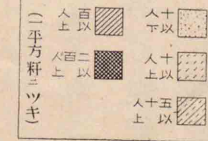 十人
以下
十人
以上
五十人
以上
百人
以上
二百人
以上
(一平方粁ニツキ)